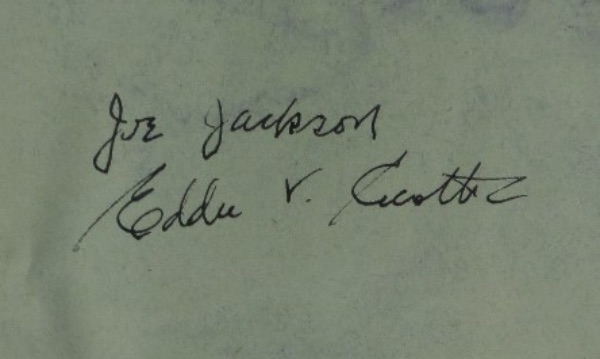 Joe Jackson
Eddie V. Cicotte